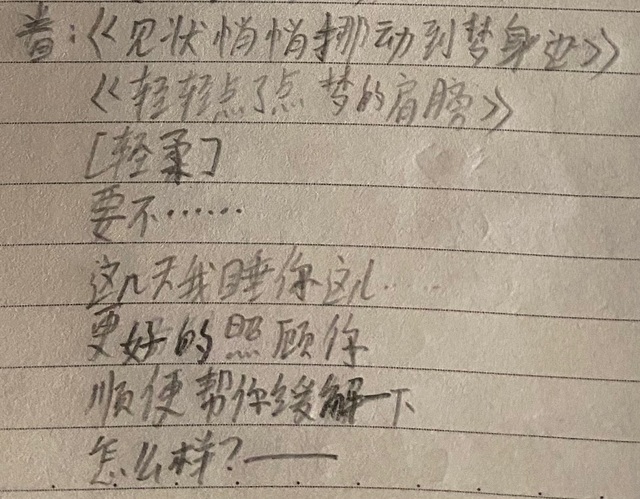 昔:《见状悄悄挪动到梦身边》
《轻轻点了点 梦的肩膀》
[轻柔]
要不……
这几天我睡你这儿……
更好的照顾你
顺便帮你缓解一下
怎么样?——